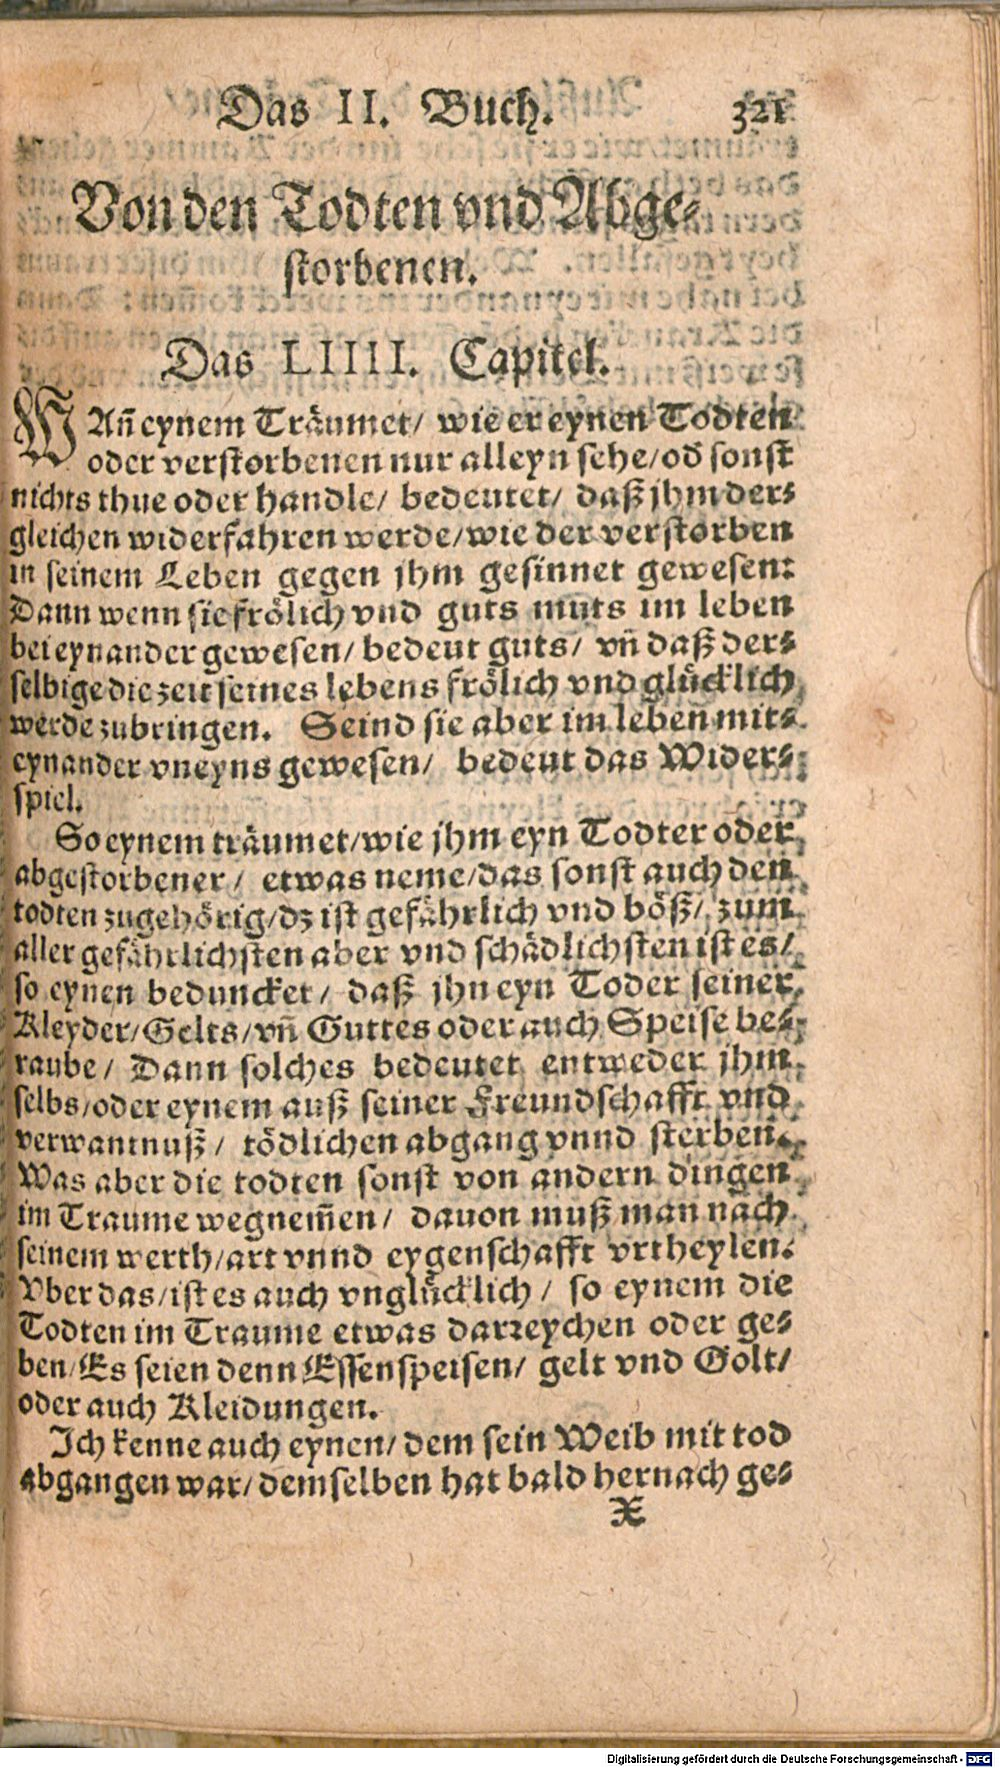 Das II. Buch. 321
Von den Todten vnd Abge⸗
storbenen.
Das LIIII. Capitel.
WAñ eynem Träumet/ wie er eynen Todten
oder verstorbenen nur alleyn sehe/ od̃ sonst
nichts thue oder handle/ bedeutet/ daß jhm der⸗
gleichen widerfahren werde/ wie der verstorben
in seinem Leben gegen jhm gesinnet gewesen:
Dann wenn sie frölich vnd guts muts im leben
bei eynander gewesen/ bedeut guts/ vñ daß der⸗
selbige die zeit seines lebens frölich vnd glücklich
werde zubringen. Seind sie aber im lebeñ mit⸗
eynander vneyns gewesen/ bedeut das Wider⸗
spiel.
So eynem träumet/ wie jhm eyn Todter oder
abgestorbener/ etwas neme/ das sonst auch den
todten zugehörig/ dz ist gefährlich vnd böß/ zum
aller gefährlichsten aber vnd schädlichsten ist es/
so eynen beduncket/ daß jhn eyn Toder seiner
Kleyder/ Gelts/ vñ Guttes oder auch Speise be⸗
raube/ Dann solches bedeutet entweder jhm
selbs/ oder eynem auß seiner Freundschafft vnd
verwantnuß/ tödlichen abgang vnnd sterben.
Was aber die todten sonst von andern dingen
im Traume wegnem̃en/ dauon muß man nach
seinem werth/ art vnnd eygenschafft vrtheylen.
Vber das/ ist es auch vnglücklich/ so eynem die
Todten im Traume etwas darreychen oder ge⸗
ben/ Es seien denn Essenspeisen/ gelt vnd Golt/
oder auch Kleidungen.
Ich kenne auch eynen/ dem sein Weib mit tod
abgangen war/ demselben hat bald hernach ge⸗
X
Digitalisierung gefördert durch die Deutsche Forschungsgemeinschaft - DFG